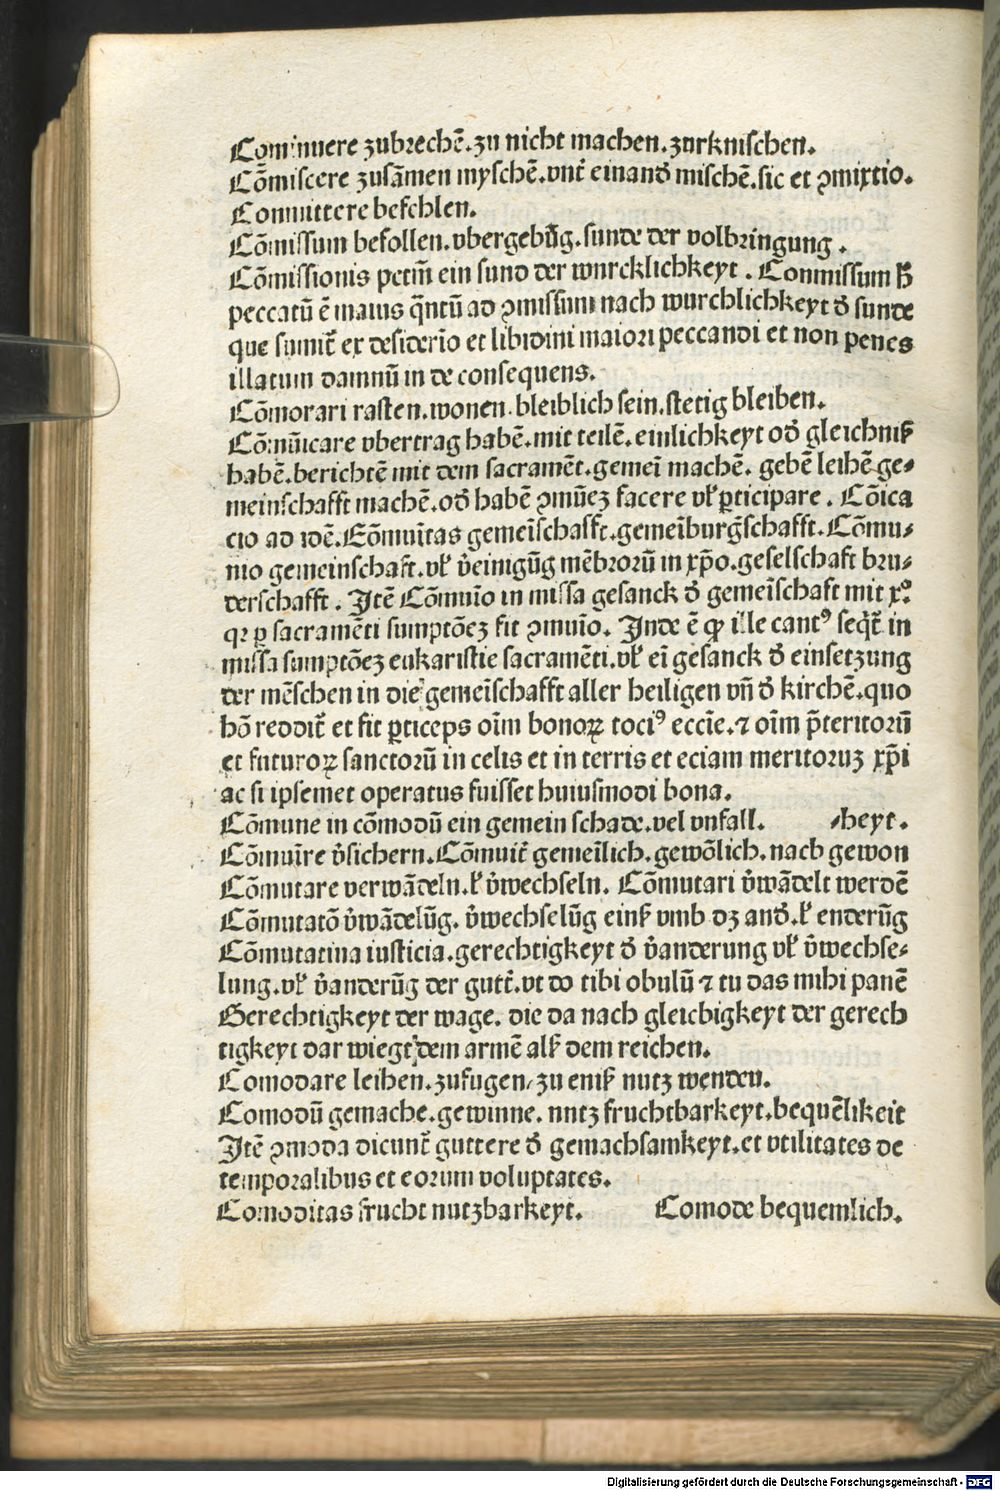 Cominuere zubrechē. zu nicht machen. zurknischen.
Cōmiscere zusāmen myschē. vnt̄ einand̕ mischē. sic et ꝯmixtio.
Committere befehlen.
Cōmissum befollen. vbergebūg. sunde der volbringung .
Cōmissionis petm̄ ein sund der wurcklichkeyt . Commissum
peccatū ē maius q̄ntū ad ꝯmissum nach wurchlichkeyt d̕ sunde
que sumit᷑ ex desiderio et libidini maiori peccandi et non penes
illatum damnū in de consequens.
Cōmorari rasten. wonen. bleiblich sein. stetig bleiben.
Cōmūicare vbertrag habē. mit teilē. einlichkeyt od̕ gleichniß
habē. berichtē mit dem sacramēt. gemeī machē. gebē leihē ge⸗
meinschafft machē. od̕ habē ꝯmūeꝫ facere vl̕ ꝑticipare . Cōica
cio ad idē. Cōmuītas gemeīschafft. gemeīburg̕schafft. Cōmu⸗
nio gemeinschaft. vl̕ v̕einigūg mēbrorū in xp̄o. geselschaft bru⸗
derschafft . Jtē Cōmuīo in missa gesanck d̕ gemeīschaft mit x°.
qꝛ ꝑ sacramēti sumptōeꝫ fit ꝯmuīo. Jnde ē ꝙ ille cantꝰ seq̄t᷑ in
missa sumptōeꝫ eukaristie sacramēti. vl̕ eī gesanck d̕ einsetzung
der mēschen in die gemeīschafft aller heiligen vn̄ d̕ kirchē. quo
hō reddit᷑ et fit ꝑticeps oīm bonoꝝ tociꝰ eccīe. ⁊ oīm p̄teritorū
et futuroꝝ sanctorū in celis et in terris et eciam meritoruꝫ xp̄i
ac si ipsemet operatus fuisset huiusmodi bona.
Cōmune in cōmodū ein gemein schade. vel vnfall. ⸗heyt.
Cōmuīre v̕sichern. Cōmuit᷑ gemeīlich. gewōlich. nach gewon
Cōmutare verwādeln. l̕ v̕wechseln. Cōmutari v̕wādelt werdē
Cōmutatō v̕wādelūg. v̕wechselūg einß vmb dꝫ and̕. l̕ enderūg
Cōmutatina iusticia. gerechtigkeyt d̕ v̕anderung vl̕ v̕wechse⸗
lung. vl̕ v̕anderūg der gutt̕. vt do tibi obulū ⁊ tu das mihi panē
Gerechtigkeyt der wage. die da nach gleichigkeyt der gerech
tigkeyt dar wiegt dem armē alß dem reichen.
Comodare leihen. zufugen, zu eniß nutz wenden.
Comodū gemache. gewinne. nutz fruchtbarkeyt. bequēlikeit
Jtē ꝯmoda dicunt᷑ guttere d̕ gemachsamkeyt. et vtilitates de
temporalibus et eorum voluptates.
Comoditas frucht nutzbarkeyt. Comode bequemlich.
Digitalisierung gefördert durch die Deutsche Forschungsgemeinschaft - DFG